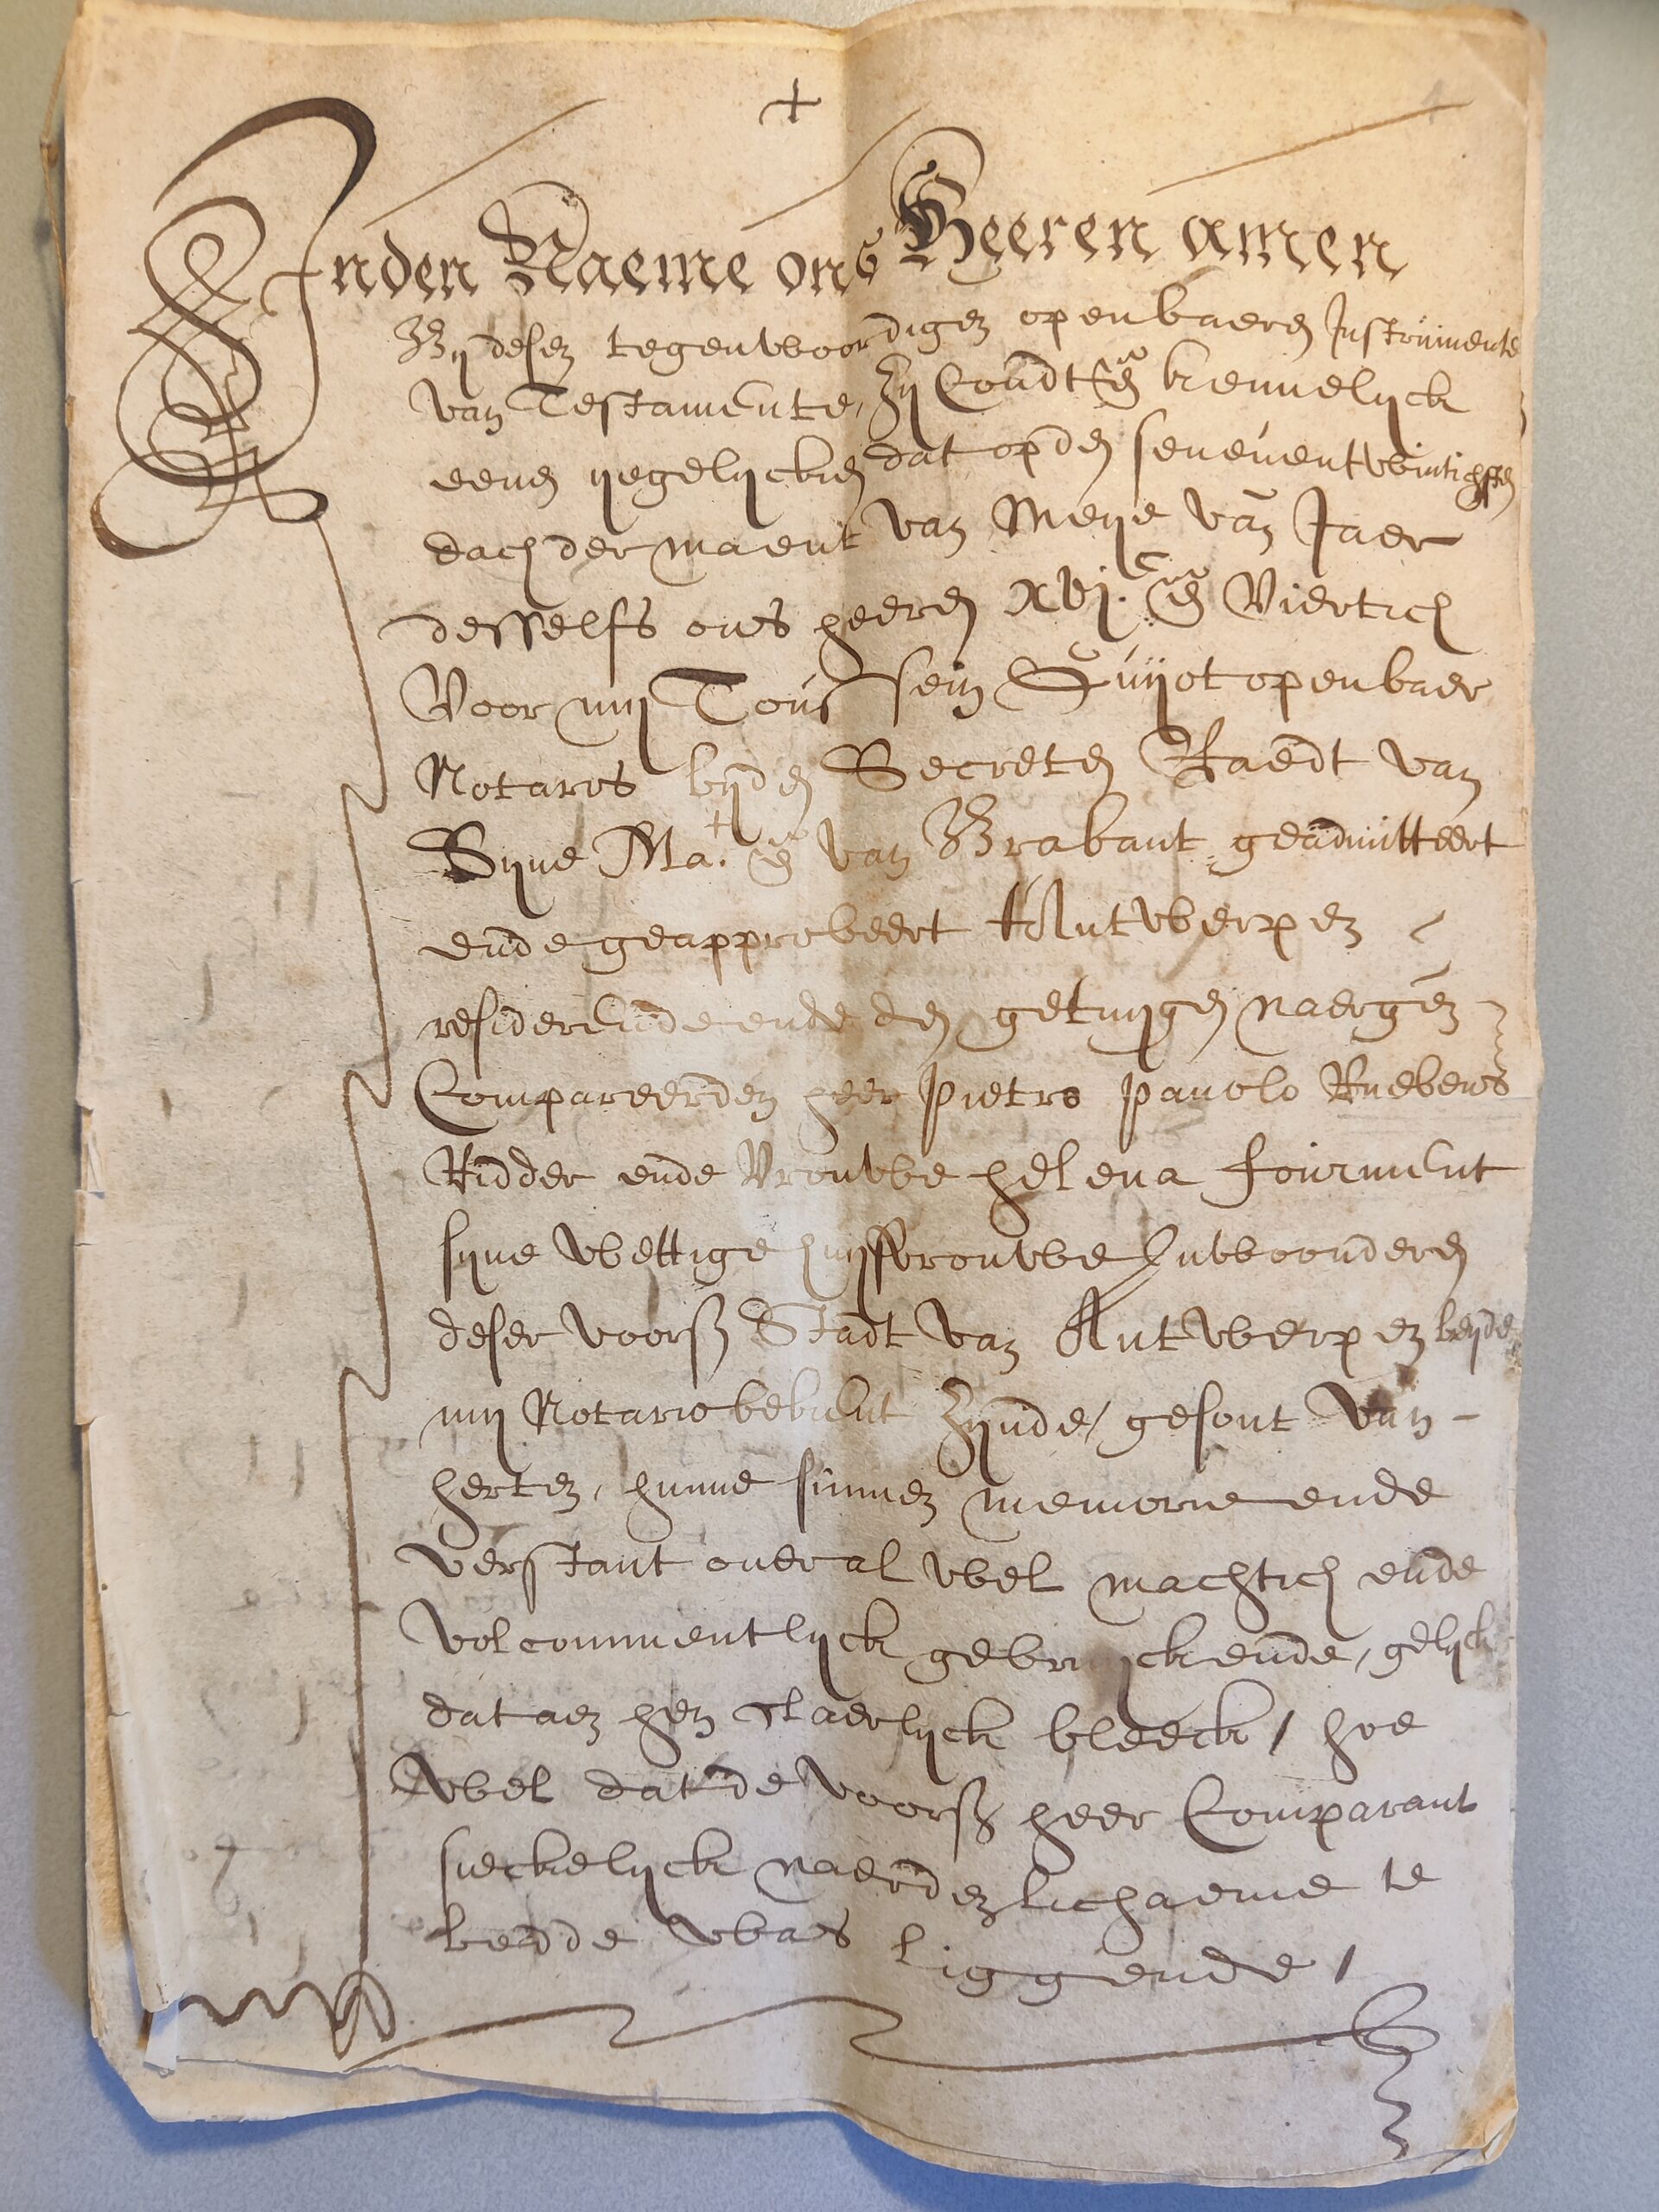 +
Inden Naeme ons Heeren amen
Bij desen tegenwoordigen openbaeren Instrumente
van Testamente, Zij Condt en̄ kennelijck
eenen ijegelijcken dat opden seuenentwintichsten
dach der maent van Meye van̄ Jaer
desselfs ons heeren xvj.c en̄ Viertich
Voor mij Toussein Guijot openbaer
Notaris bijden Secreten Raedt van
Sijne Ma.t en̄ van Brabant geadmitteert
ende geapprobeert t'Antwerpen
residerende ende den getuijgen naergen̄
Compareerden heer Pietro Pauolo Ruebens
Ridder ende Vrouwe helena fourment
sijne wettige huijsvrouwe Inwoonderen
deser voorß Stadt van Antwerpen beijde
mij Notario bekent Zijnde, gesont van
herten, hunne sinnen memorie ende
verstant oueral wel machtich ende
volcommentlijck gebruijckende, gelijck
dat aen hen claerlijck bleeck, hoe
wel dat de voorß heer Comparant
sieckelijck naer den lichaeme te
bedde was liggende,